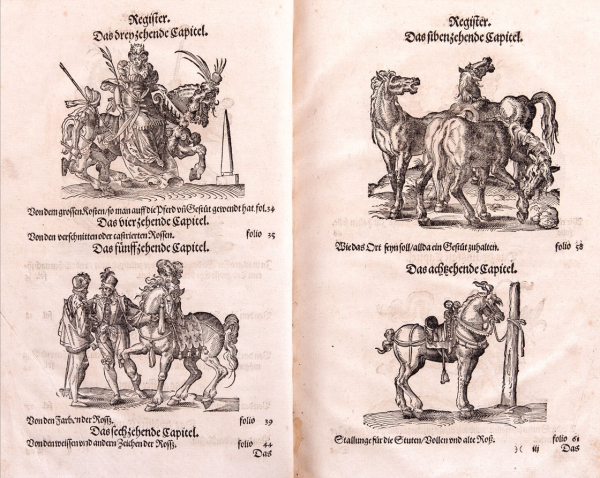 Register.
Das dreyzehende Capitel.
Von dem grossen Kosten/so man auff die Pferd vñ Gestüt gewendt hat. fol.34
Das vierzehende Capitel.
Von den verschnitten oder castrierten Rossen. folio 35
Das fünffzehende Capitel.
Von den Farben der Rossz. folio 39
Das sechzehende Capitel.
Von den weissen vnd andern Zeichen der Rossz. folio 44
Das
Register.
Das sibenzehende Capitel.
Wie das Ort seyn soll/allda ein Gestüt zuhalten. folio 58
Das achtzehende Capitel.
Stallunge für die Stuten/Vollen vnd alte Roß. folio 61
)( iij Das